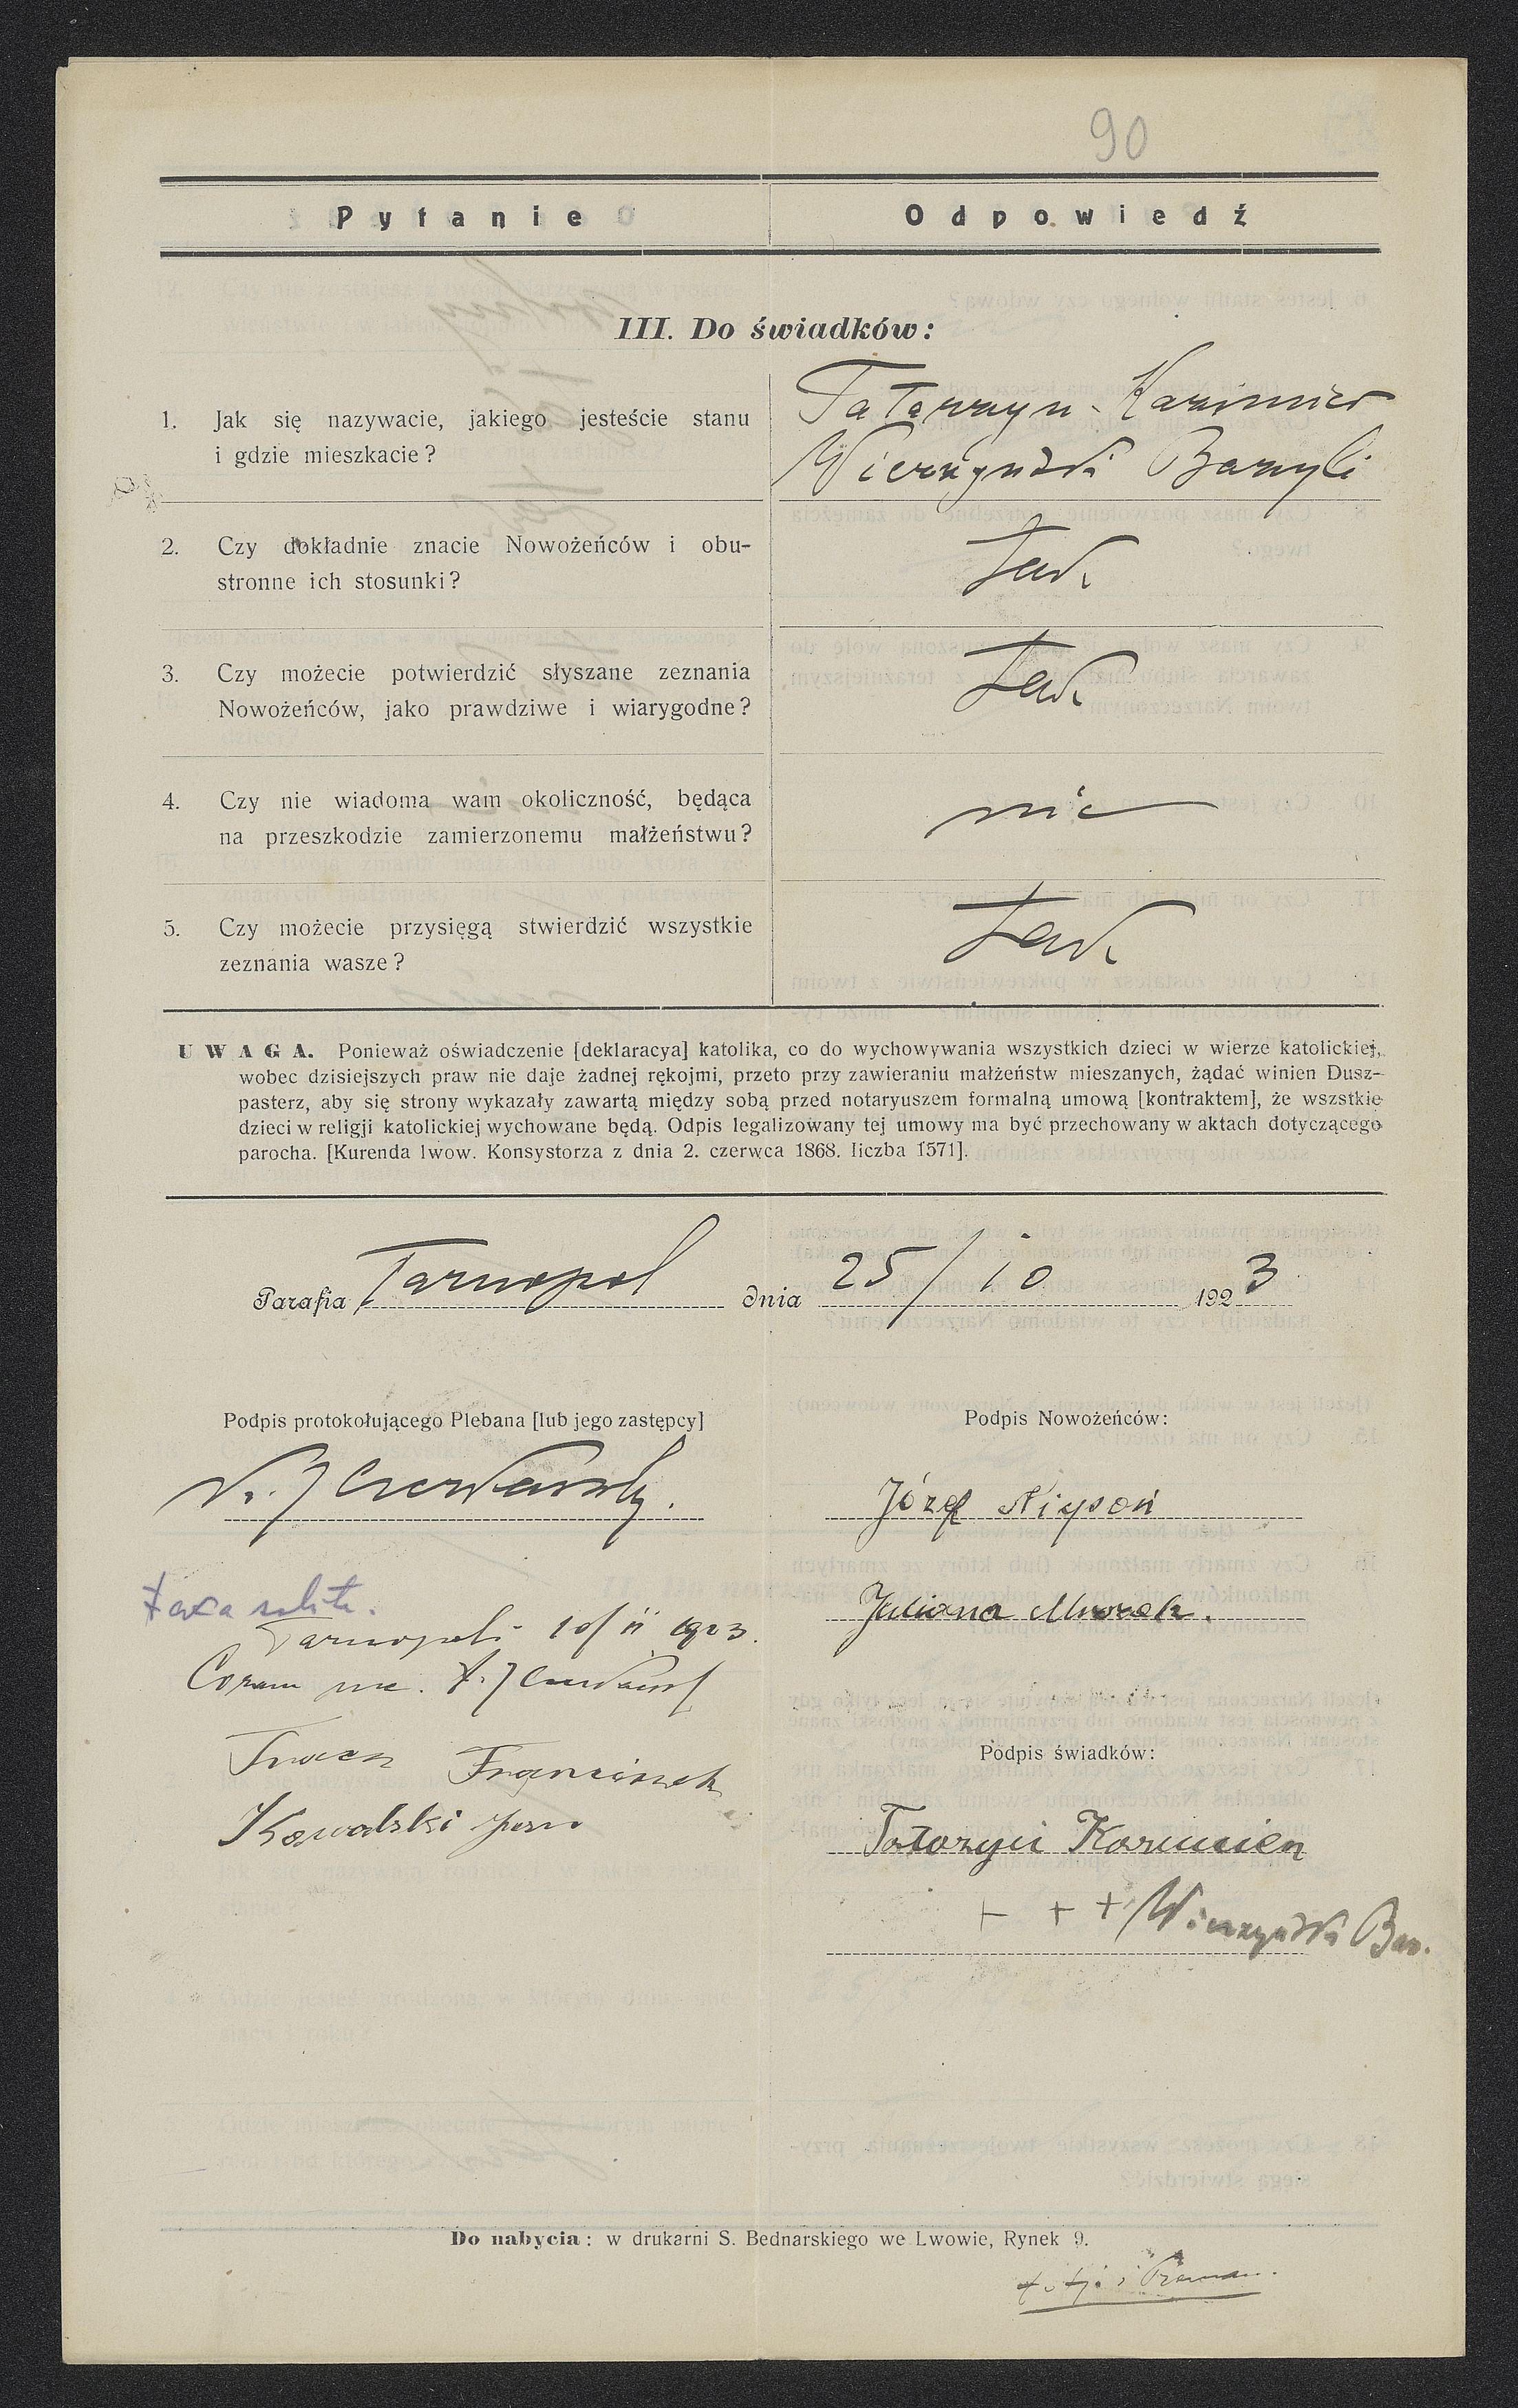 90
Pytanie Odpowiedź
III. Do świadków:
1. Jak się nazywacie, jakiego jesteście stanu
i gdzie mieszkacie?
Tatarzyn Kazimierz
Wierzyński Bazyli
2. Czy dokładnie znacie Nowożeńców i obu-
stronne ich stosunki?
tak
3. Czy możecie potwierdzić słyszane zeznania
Nowożeńców, jako prawdziwe i wiarygodne?
tak
4. Czy nie wiadoma wam okoliczność, będąca
na przeszkodzie zamierzonemu małżeństwu?
nie
5. Czy możecie przysięgą stwierdzić wszystkie
zeznania wasze?
tak
UWAGA. Ponieważ oświadczenie [deklaracya] katolika, co do wychowywania wszystkich dzieci w wierze katolickiej,
wobec dzisiejszych praw nie daje żadnej rękojmi, przeto przy zawieraniu małżeństw mieszanych, żądać winien Dusz-
pasterz, aby się strony wykazały zawartą między sobą przed notaryuszem formalną umową [kontraktem], że wszstkie
dzieci w religji katolickiej wychowane będą. Odpis legalizowany tej umowy ma być przechowany w aktach dotyczącego
parocha. [Kurenda lwow. Konsystorza z dnia 2. czerwca 1868. liczba 1571].
Parafia Tarnopol dnia 25/10 1923
Podpis protokołującego Plebana [lub jego zastępcy]
Podpis Nowożeńców:
Józef
Juliana Mrozek.
taxa solita.
Tarnopoli 10/11 1923.
Coram me.
Franciszek
Kowalski Jan
Podpis świadków:
Tatarzyn Kazimierz
+ + + Wierzyński Baz.
Do nabycia: w drukarni S. Bednarskiego we Lwowie, Rynek 9.